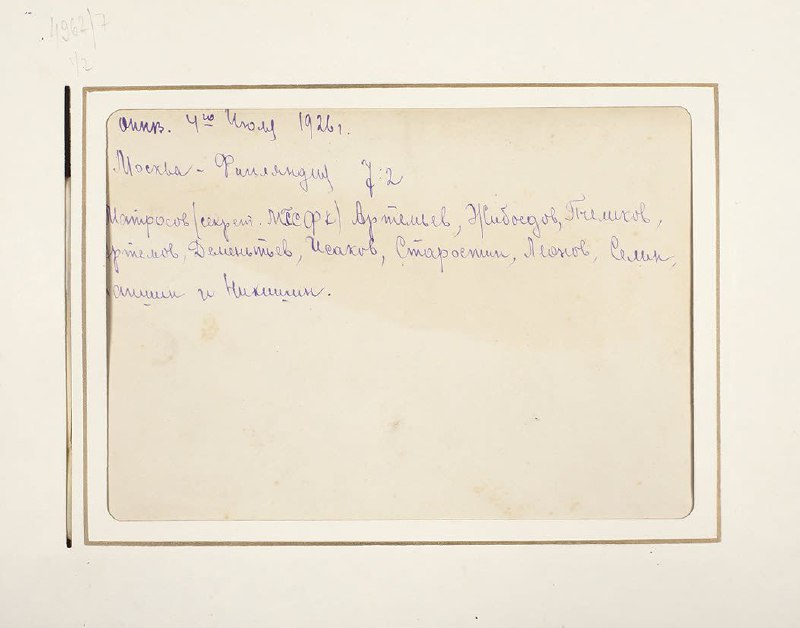 4962/7
1/2
4го Июля 1926 г.
Москва - Финляндия 7:2
Матросов (секрет. МГСФК) Артемьев, Живоедов, Пчеликов,
ртемов, Дементьев, Исаков, Старостин, Леонов, Селин,
апшин и Никишин.